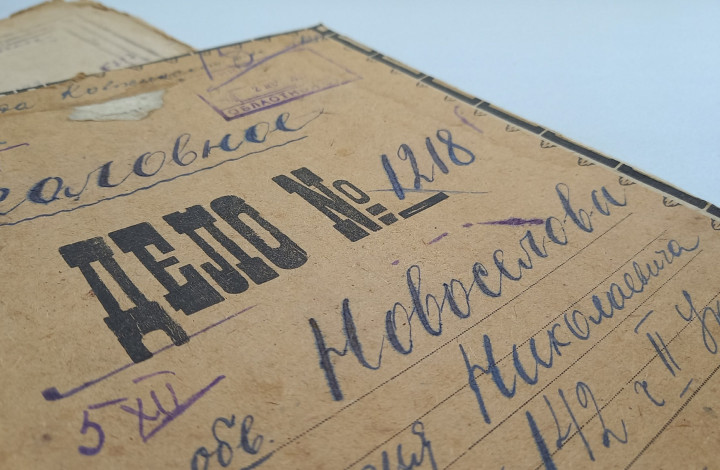 ОБЛАСТН
головное
ДЕЛО № 1218
Новоселова
Николаевича
5 XII
обв.
142 ч II У